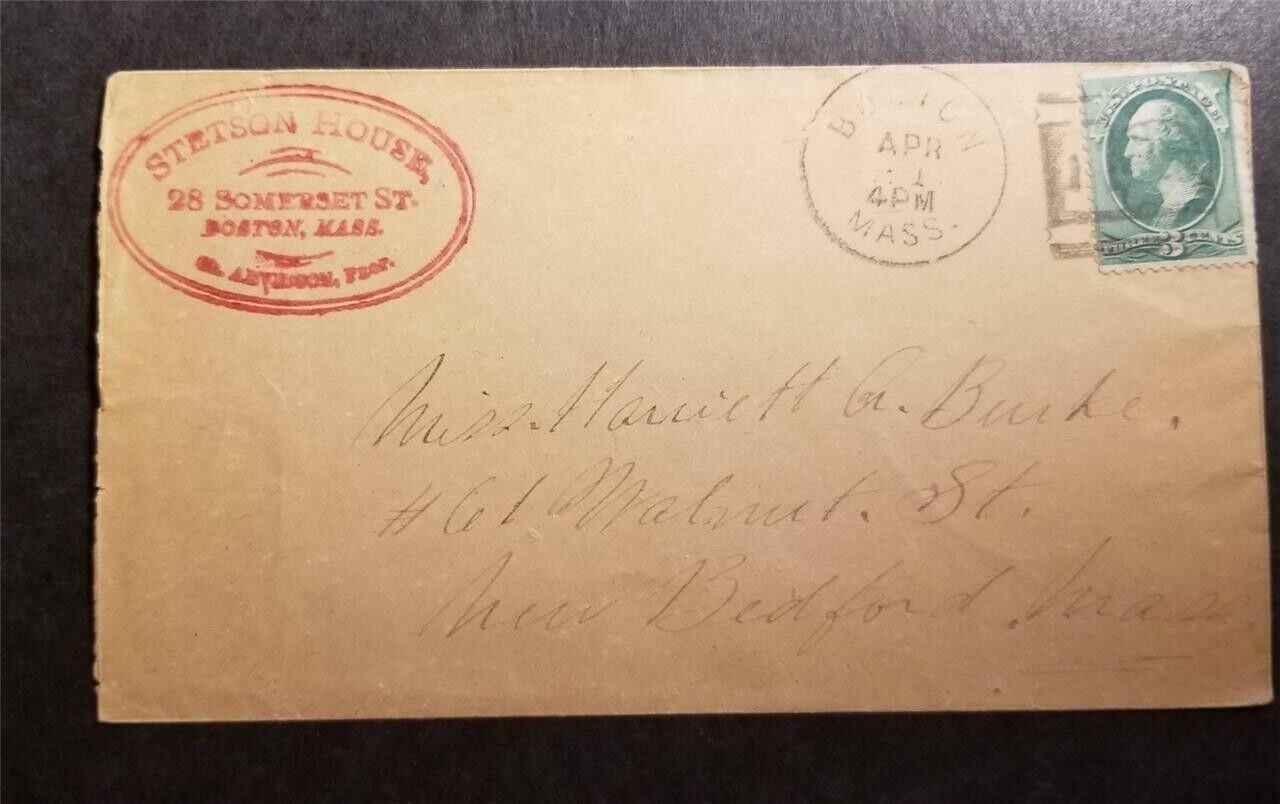 STETSON HOUSE,
28 SOMERSET ST.
BOSTON, MASS.
PROP.
BOSTON
APR
1
4PM
MASS.
1
U.S. POSTAGE
THREE 3 CENTS
Miss. Harriett A. Burke.
#61 Walnut. St.
New Bedford. Mass.